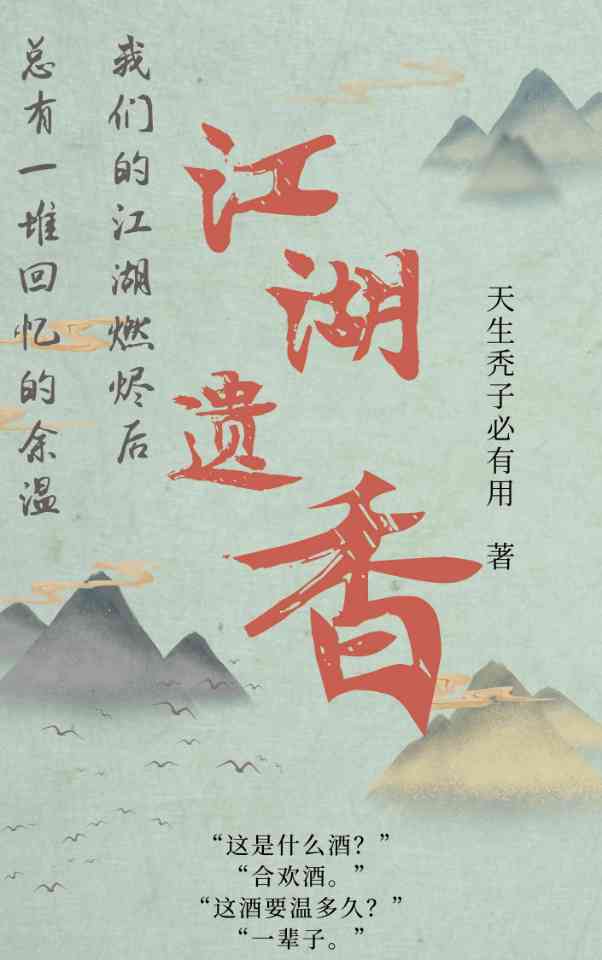 我们的江湖燃烬后
总有一堆回忆的余温
江湖遗香
天生秃子必有用 著
“这是什么酒？”
“合欢酒。”
“这酒要温多久？”
“一辈子。”